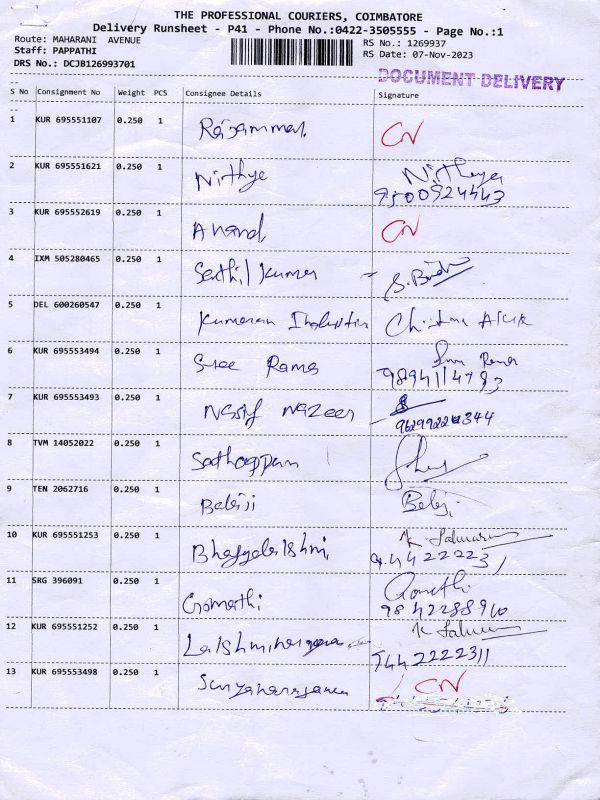 THE PROFESSIONAL COURIERS, COIMBATORE
Delivery Runsheet - P41 - Phone No.:0422-3505555 - Page No.:1
Route: MAHARANI AVENUE
RS No.: 1269937
Staff: PAPPATHI
RS Date: 07-Nov-2023
DRS No.: DCJB126993701
DOCUMENT DELIVERY
S No Consignment No Weight PCS Consignee Details Signature
1 KUR 695551107 0.250 1 Rajammal CN
2 KUR 695551621 0.250 1 Nithye Nithya
9500924443
3 KUR 695552619 0.250 1 Anand CN
4 IXM 505280465 0.250 1 Senthil Kumar
5 DEL 600260547 0.250 1 Kumaran
6 KUR 695553494 0.250 1 Sree Rama
9894114783
7 KUR 695553493 0.250 1 Nassif Nazeer
8 TVM 14052022 0.250 1 Sathappan
9 TEN 2062716 0.250 1 Balaji Balaji
10 KUR 695551253 0.250 1 K
11 SRG 396091 0.250 1 Gomathi Gomathi
12 KUR 695551252 0.250 1 K
9442222311
13 KUR 695553498 0.250 1 CN